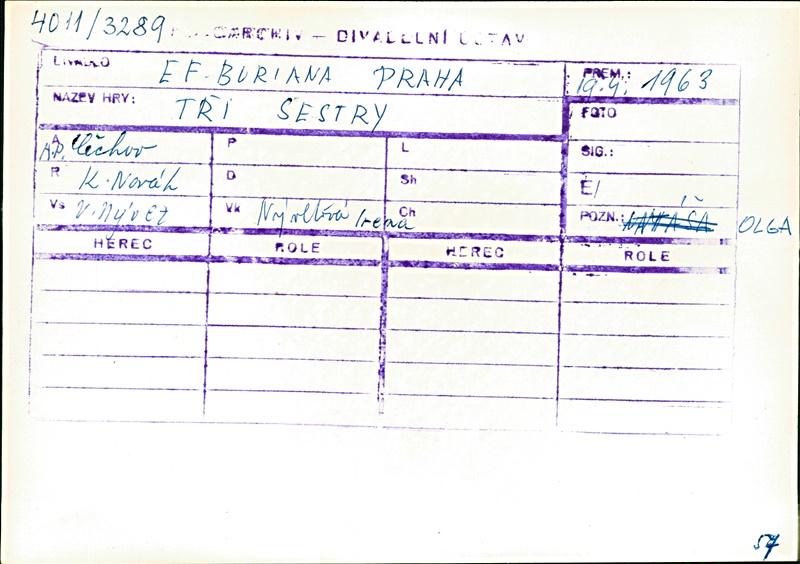 4011/3289 FOTOARCHIV – DIVADELNÍ ÚSTAV
DIVADLO E.F. BURIANA PRAHA
PREM.: 19.4. 1963
NÁZEV HRY: TŘI SESTRY
FOTO
A A.P. Čechov P L
SIG.:
R K. Novák D Sh
Č/
Vs V. Nývlt Vk Nývltová Irena Ch
POZN.: NATAŠA OLGA
HEREC ROLE HEREC ROLE
57